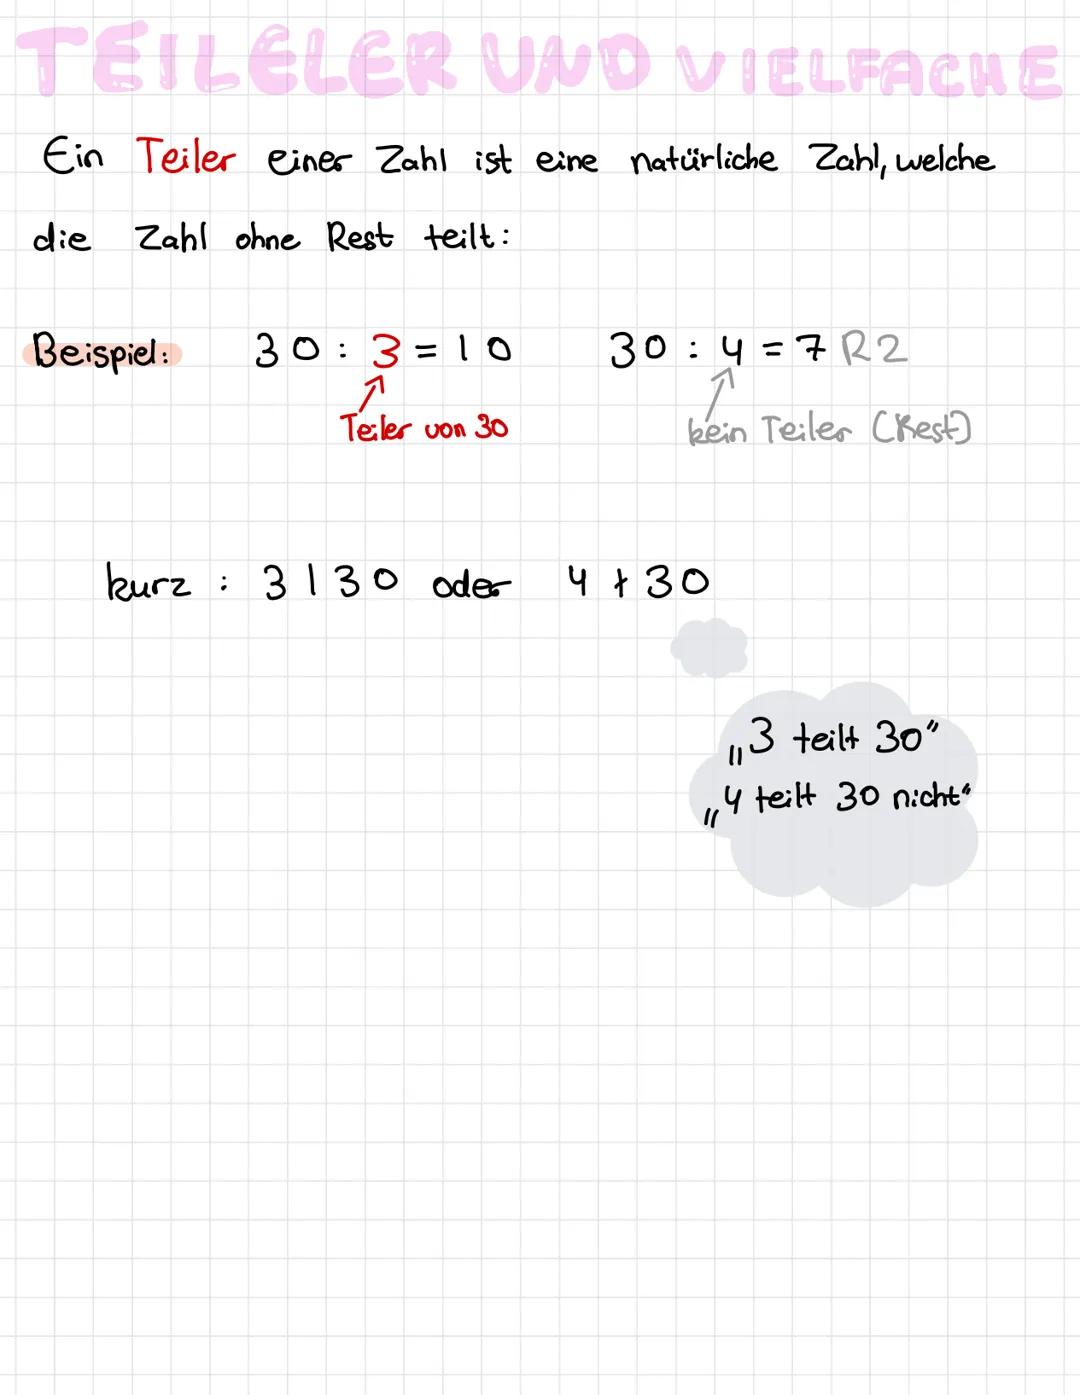 TEILELER UND VIELFACHE
Ein Teiler einer Zahl ist eine natürliche Zahl, welche
die Zahl ohne Rest teilt:
Beispiel: 30 : 3 = 10 30 : 4 = 7 R2
Teiler von 30 kein Teiler (Rest)
kurz : 3 | 30 oder 4 ∤ 30
„3 teilt 30"
„4 teilt 30 nicht"